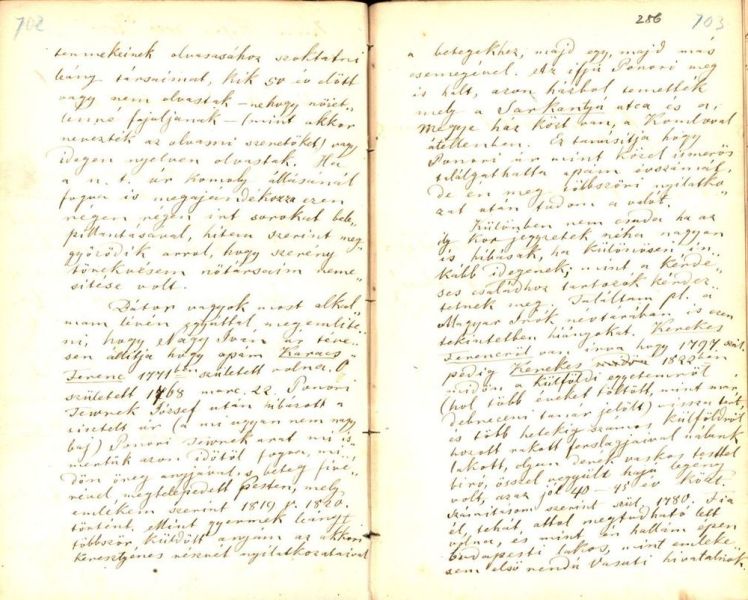 702
termekeinek olvasásához szoktatni
leány társaimat, kik 50 év előtt
vagy nem olvastak – nehogy
tenné fajuljanak – (mint akkor
nevezték az olvasni szeretőket) vagy
idegen nyelven olvastak. Ha
a n. t. úr komoly állásánál
fogva is megajándékozza ezen
régen régen írt sorokat bele„
pillantásával, hitem szerint meg„
győződik arról, hogy szerény
törekvésem nőtársaim neme„
sítése volt.
Bátor vagyok most alkal„
mam lévén egyúttal megemlíte„
ni, hogy Nagy Iván úr téve„
sen állítja hogy apám Karacs
Ferenc 1771ben született volna. Ő
született 1768 marc. 22. Ponori
Tewrek József után hibázott a
tisztelt úr (a mi ugyan nem nagy
baj) Ponori Tewrek urat mi is„
mertük azon időtől fogva, mi„
dőn öreg anyjával, s beteg fivé„
rével megtelepedett Pesten, mely
emlékem szerint 1819 v. 1820.
történt, mint gyermek leányt
többször küldött anyám az akkori
keresztyénes részvét nyilatkozataival
286 703
a betegekhez, majd egy, majd más
csemegével. Az ifjú Ponori meg
is halt, azon házból temették
mely a Sarkantyú utca és a
Megye ház közt van, a Komlóval
átellenben. Ez tanúsítja hogy
Ponori úr mint közel ismerős
találgathatta apám évszámát,
de én meg többszöri nyilatko„
zat után tudom a valót.
Különben nem csuda ha az
ily kor jegyzetek néha nagyon
is hibásak, ha különösen in„
kább idegenek, mint a kérdé„
ses családhoz tartozók kérdez„
tetnek meg. Találtam pl. a
Magyar Irók névtárában is ezen
tekintetben hiányokat. Kerekes
Ferencről van írva hogy 1797 szül.
pedig Kerekes 1822ben
midőn a külföldi egyetemről
(hol több éveket töltött, mint már
debreceni tanár jelölt) vissza tért,
és több hetekig számos külföldről
hozott rakott
lakott, olyan derék vaskos testtel
bíró, ősszel vegyült hajú legény
volt, azaz jól 40 – 45 év közt.
Számításom szerint szül. 1780. Fia
él, tehát attól megtudható lett
volna, és mint én hallám épen
budapesti lakos, mint emléke
sem első rendű Vasuti hivatalnok.